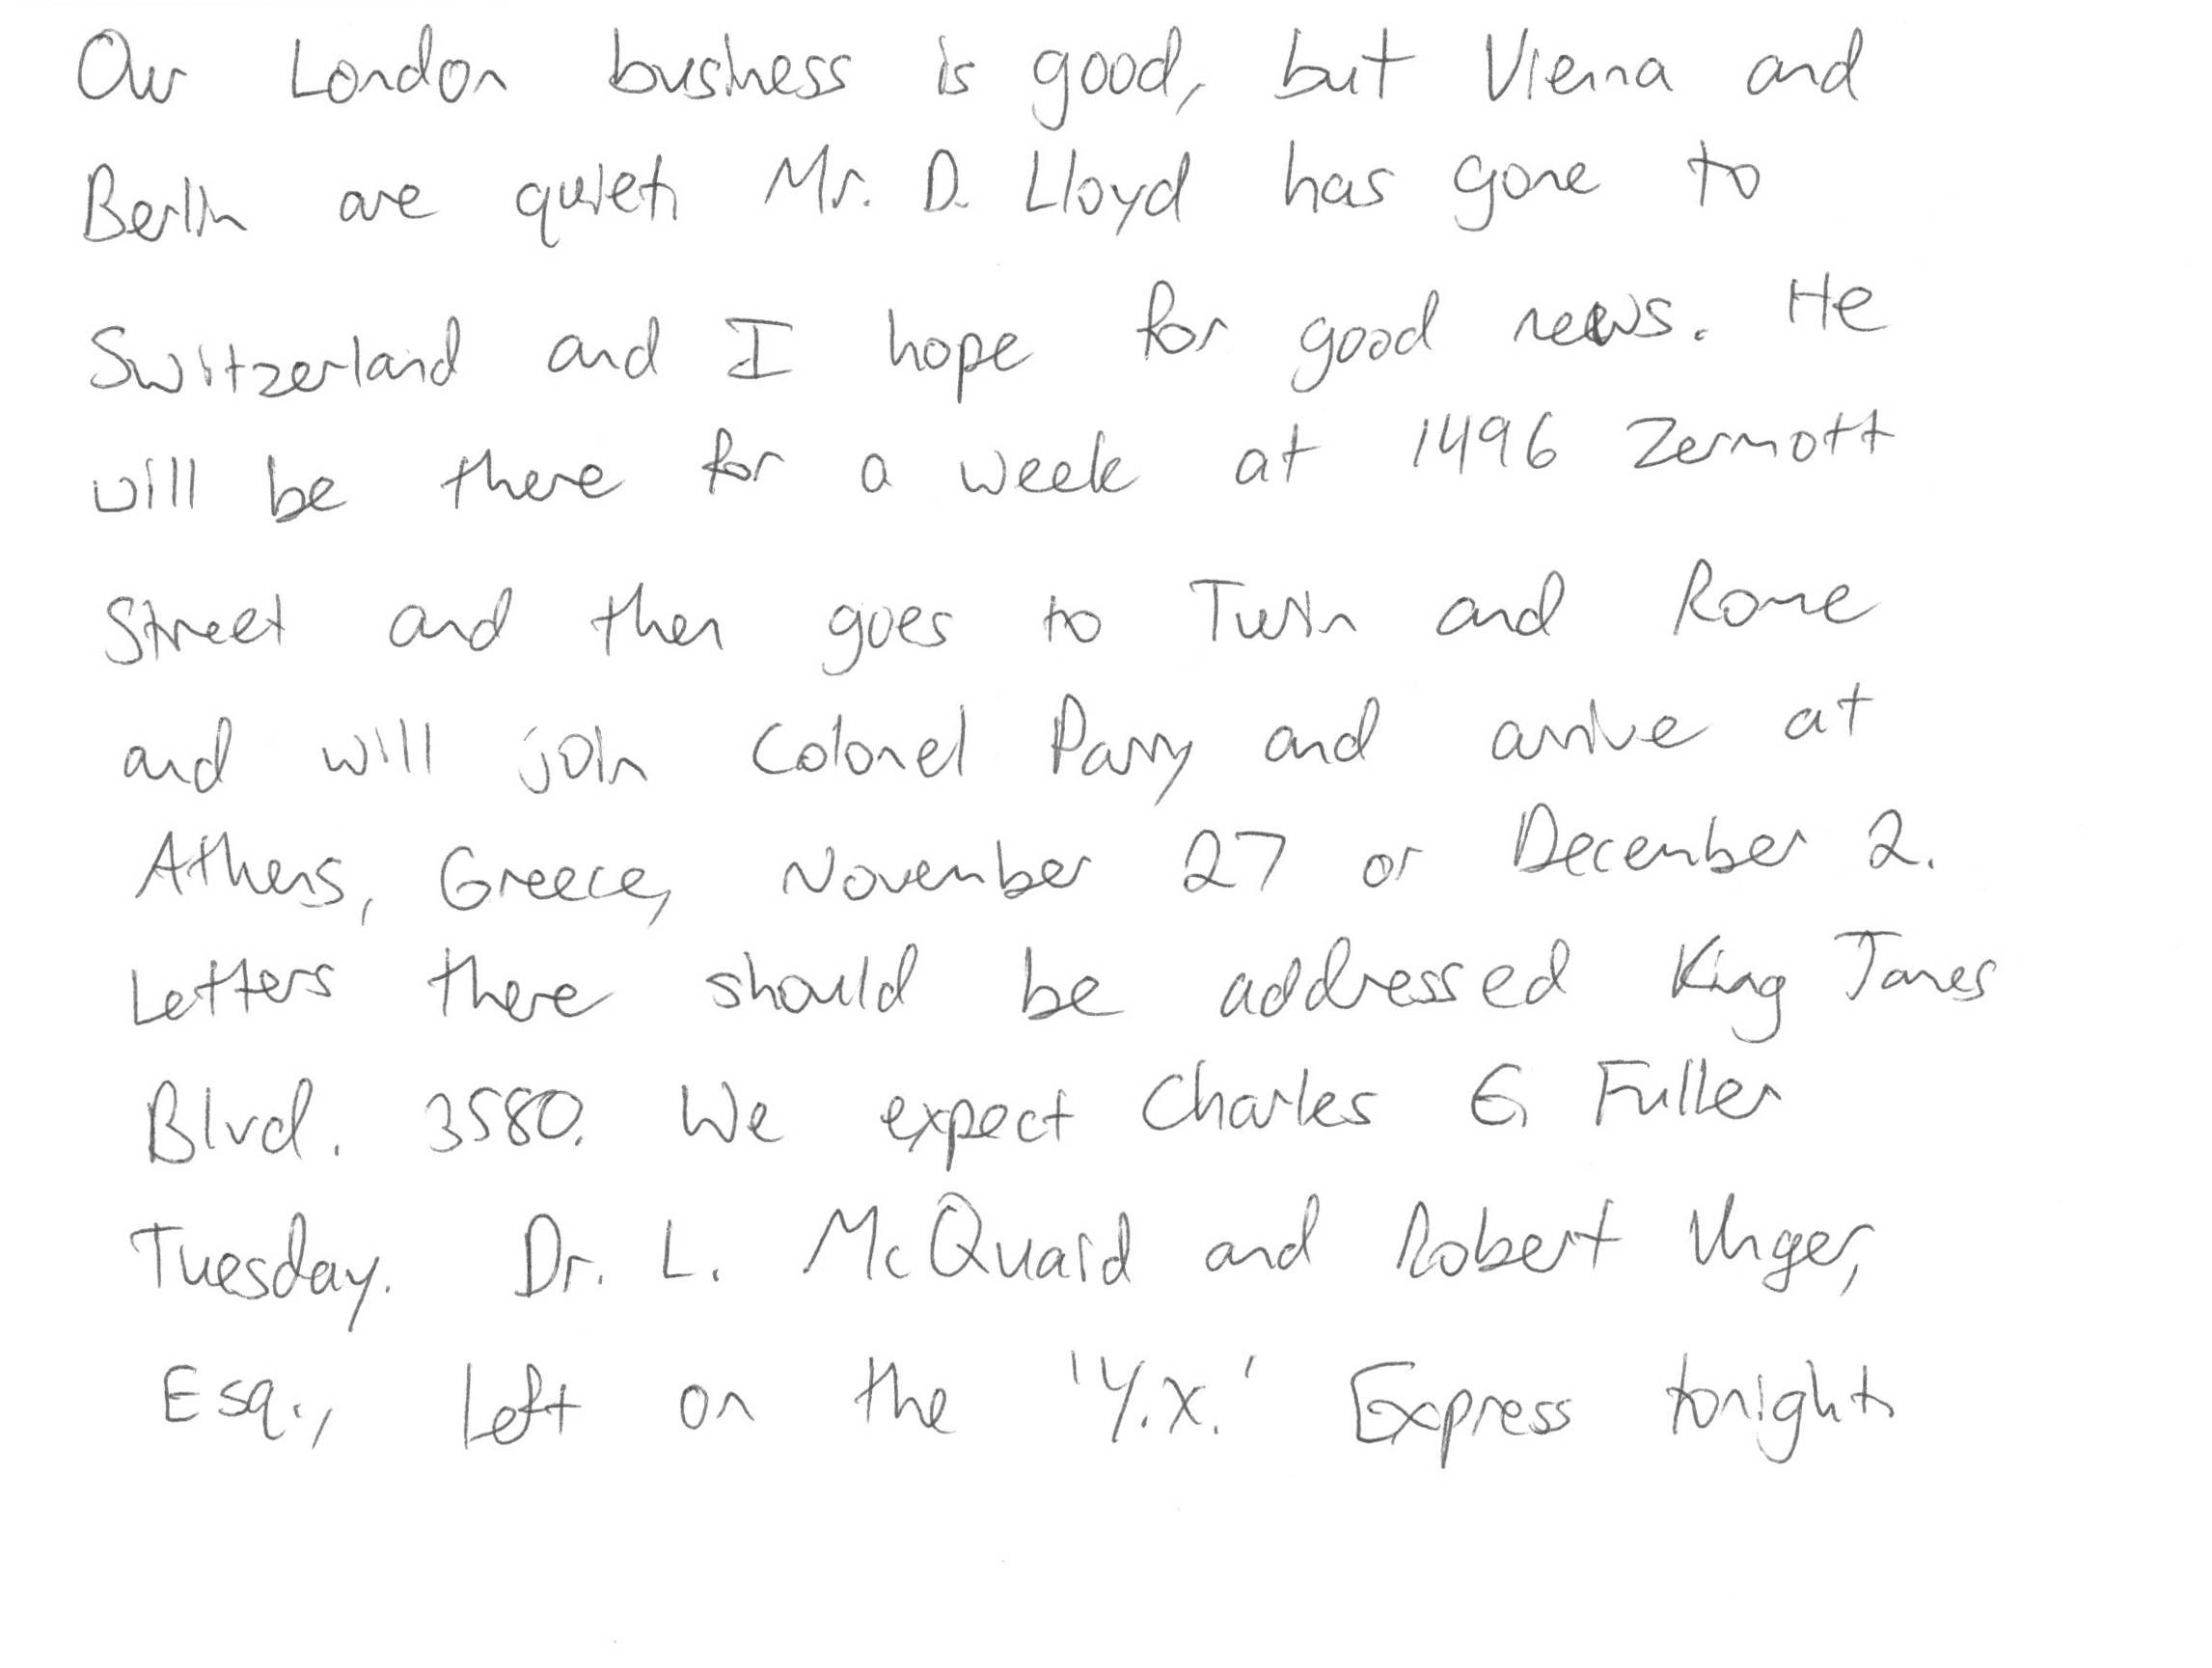 Our London business is good, but Vienna and
Berlin are quiet. Mr. D. Lloyd has gone to
Switzerland and I hope for good news. He
will be there for a week at 1496 Zermott
Street and then goes to Turin and Rome
and will join Colonel Parry and arrive at
Athens, Greece, November 27 or December 2.
Letters there should be addressed King James
Blvd. 3580. We expect Charles G Fuller
Tuesday. Dr. L. McQuaid and Robert Unger,
Esq., left on the 'Y.X.' Express tonight.